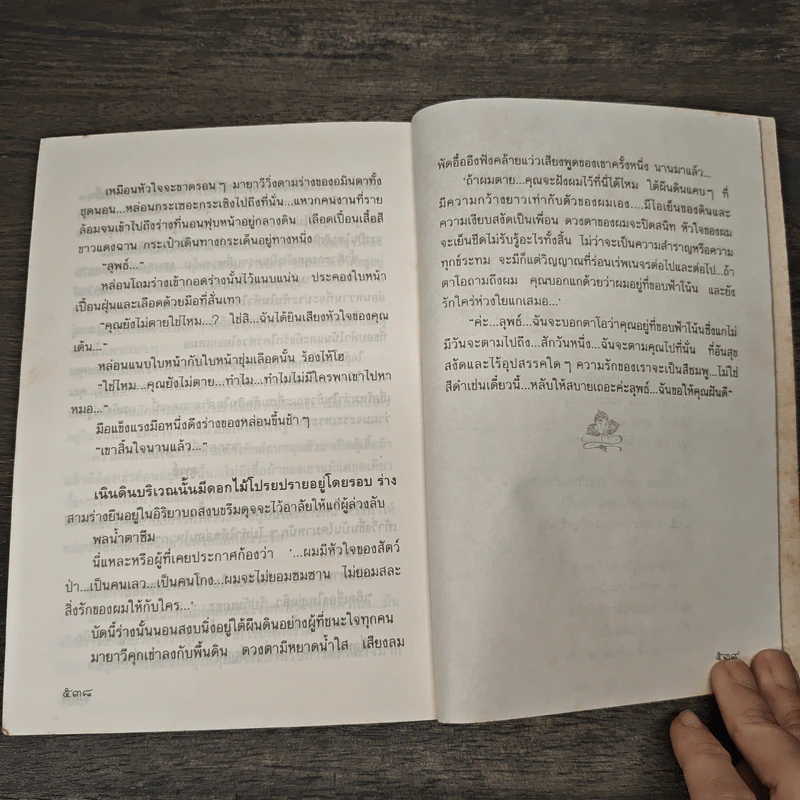 เหมือนหัวใจจะขาดรอนๆ มายาวีวิ่งตามร่างของอมินตาทั้ง
ชุดนอน...หล่อนกระเซอะกระเซิงไปถึงที่นั่น...แหวกคนงานที่ราย
ล้อมจนเข้าไปถึงร่างที่นอนฟุบหน้าอยู่กลางดิน เลือดเปื้อนเสื้อสี
ขาวแดงฉาน กระเป๋าเดินทางกระเด็นอยู่ทางหนึ่ง
"ลุพธ์..."
หล่อนโถมร่างเข้ากอดร่างนั้นไว้แนบแน่น ประคองใบหน้า
เปื้อนฝุ่นและเลือดด้วยมือที่สั่นเทา
"คุณยังไม่ตายใช่ไหม...? ใช่สิ...ฉันได้ยินเสียงหัวใจของคุณ
เต้น..."
หล่อนแนบใบหน้ากับใบหน้าชุ่มเลือดนั้น ร้องไห้โฮ
"ใช่ไหม...คุณยังไม่ตาย...ทำไม...ทำไมไม่มีใครพาเขาไปหา
หมอ..."
มือแข็งแรงมือหนึ่งดึงร่างของหล่อนขึ้นช้าๆ
"เขาสิ้นใจนานแล้ว..."
เนินดินบริเวณนั้นมีดอกไม้โปรยปรายอยู่โดยรอบ ร่าง
สามร่างยืนอยู่ในอิริยาบถสงบขรึมดุจจะไว้อาลัยให้แก่ผู้ล่วงลับ
พลน้ำตาซึม
นี่แหละหรือผู้ที่เคยประกาศก้องว่า '...ผมมีหัวใจของสัตว์
ป่า...เป็นคนเลว...เป็นคนโกง...ผมจะไม่ยอมซมซาน ไม่ยอมสละ
สิ่งรักของผมให้กับใคร...'
บัดนี้ร่างนั้นนอนสงบนิ่งอยู่ใต้ผืนดินอย่างผู้ที่ชนะใจทุกคน
มายาวีคุกเข่าลงกับพื้นดิน ดวงตามีหยาดน้ำใส เสียงลม
๕๓๘
พัดอื้ออึงฟังคล้ายแว่วเสียงพูดของเขาครั้งหนึ่ง นานมาแล้ว...
'ถ้าผมตาย...คุณจะฝังผมไว้ที่นี่ได้ไหม ใต้ผืนดินแคบๆ ที่
มีความกว้างยาวเท่ากับตัวของผมเอง....มีไอเย็นของดินและ
ความเงียบสงัดเป็นเพื่อน ดวงตาของผมจะปิดสนิท หัวใจของผม
จะเย็นชืดไม่รับรู้อะไรทั้งสิ้น ไม่ว่าจะเป็นความสำราญหรือความ
ทุกข์ระทม จะมีก็แต่วิญญาณที่ร่อนเร่พเนจรต่อไปและต่อไป...ถ้า
ตาโอถามถึงผม คุณบอกแกด้วยว่าผมอยู่ที่ขอบฟ้าโน้น และยัง
รักใคร่ห่วงใยแกเสมอ...'
"ค่ะ...ลุพธ์...ฉันจะบอกตาโอว่าคุณอยู่ที่ขอบฟ้าโน้นซึ่งแกไม่
มีวันจะตามไปถึง...สักวันหนึ่ง...ฉันจะตามคุณไปที่นั่น ที่อันสุข
สงัดและไร้อุปสรรคใดๆ ความรักของเราจะเป็นสีชมพู...ไม่ใช่
สีดำเช่นเดี๋ยวนี้...หลับให้สบายเถอะค่ะลุพธ์...ฉันขอให้คุณฝันดี"
๕๓๙